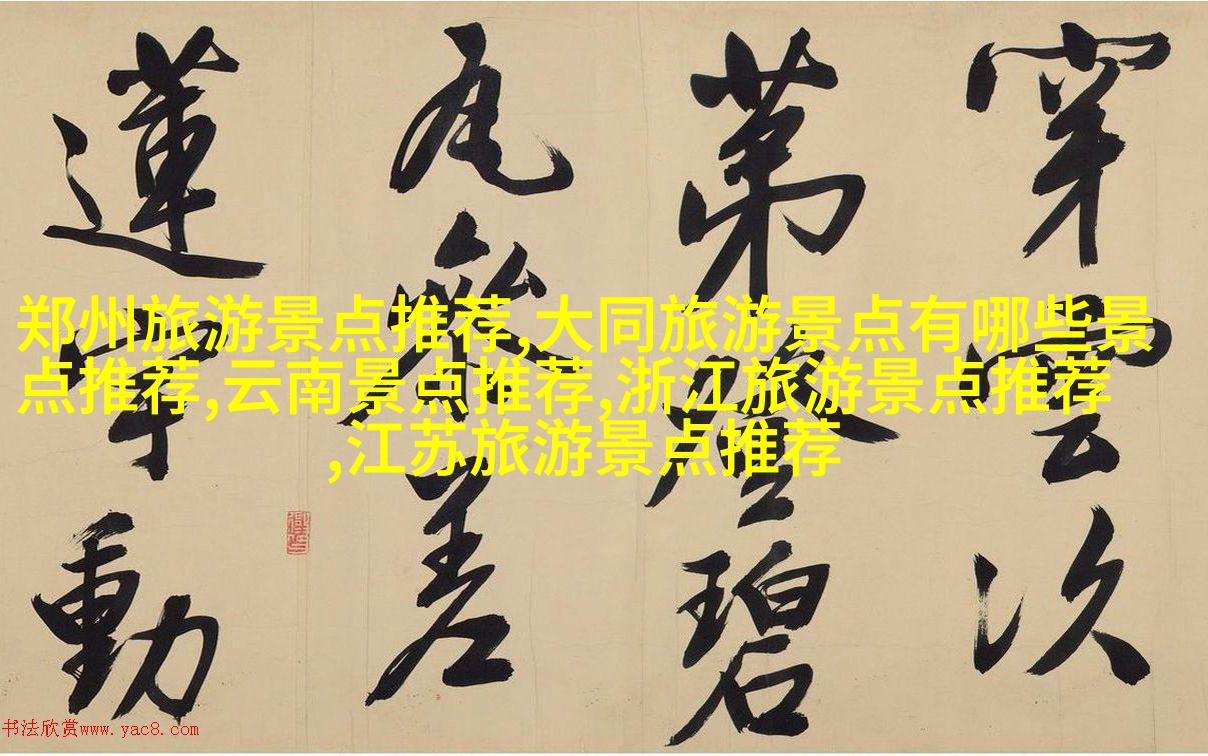 郑州旅游景点推荐,大同旅游景点有哪些景
点推荐,云南景点推荐,浙江旅游景点推荐
,江苏旅游景点推荐
穿雲次
第碧
瓦參差
蓮宇動
书法欣赏www.yac8.com